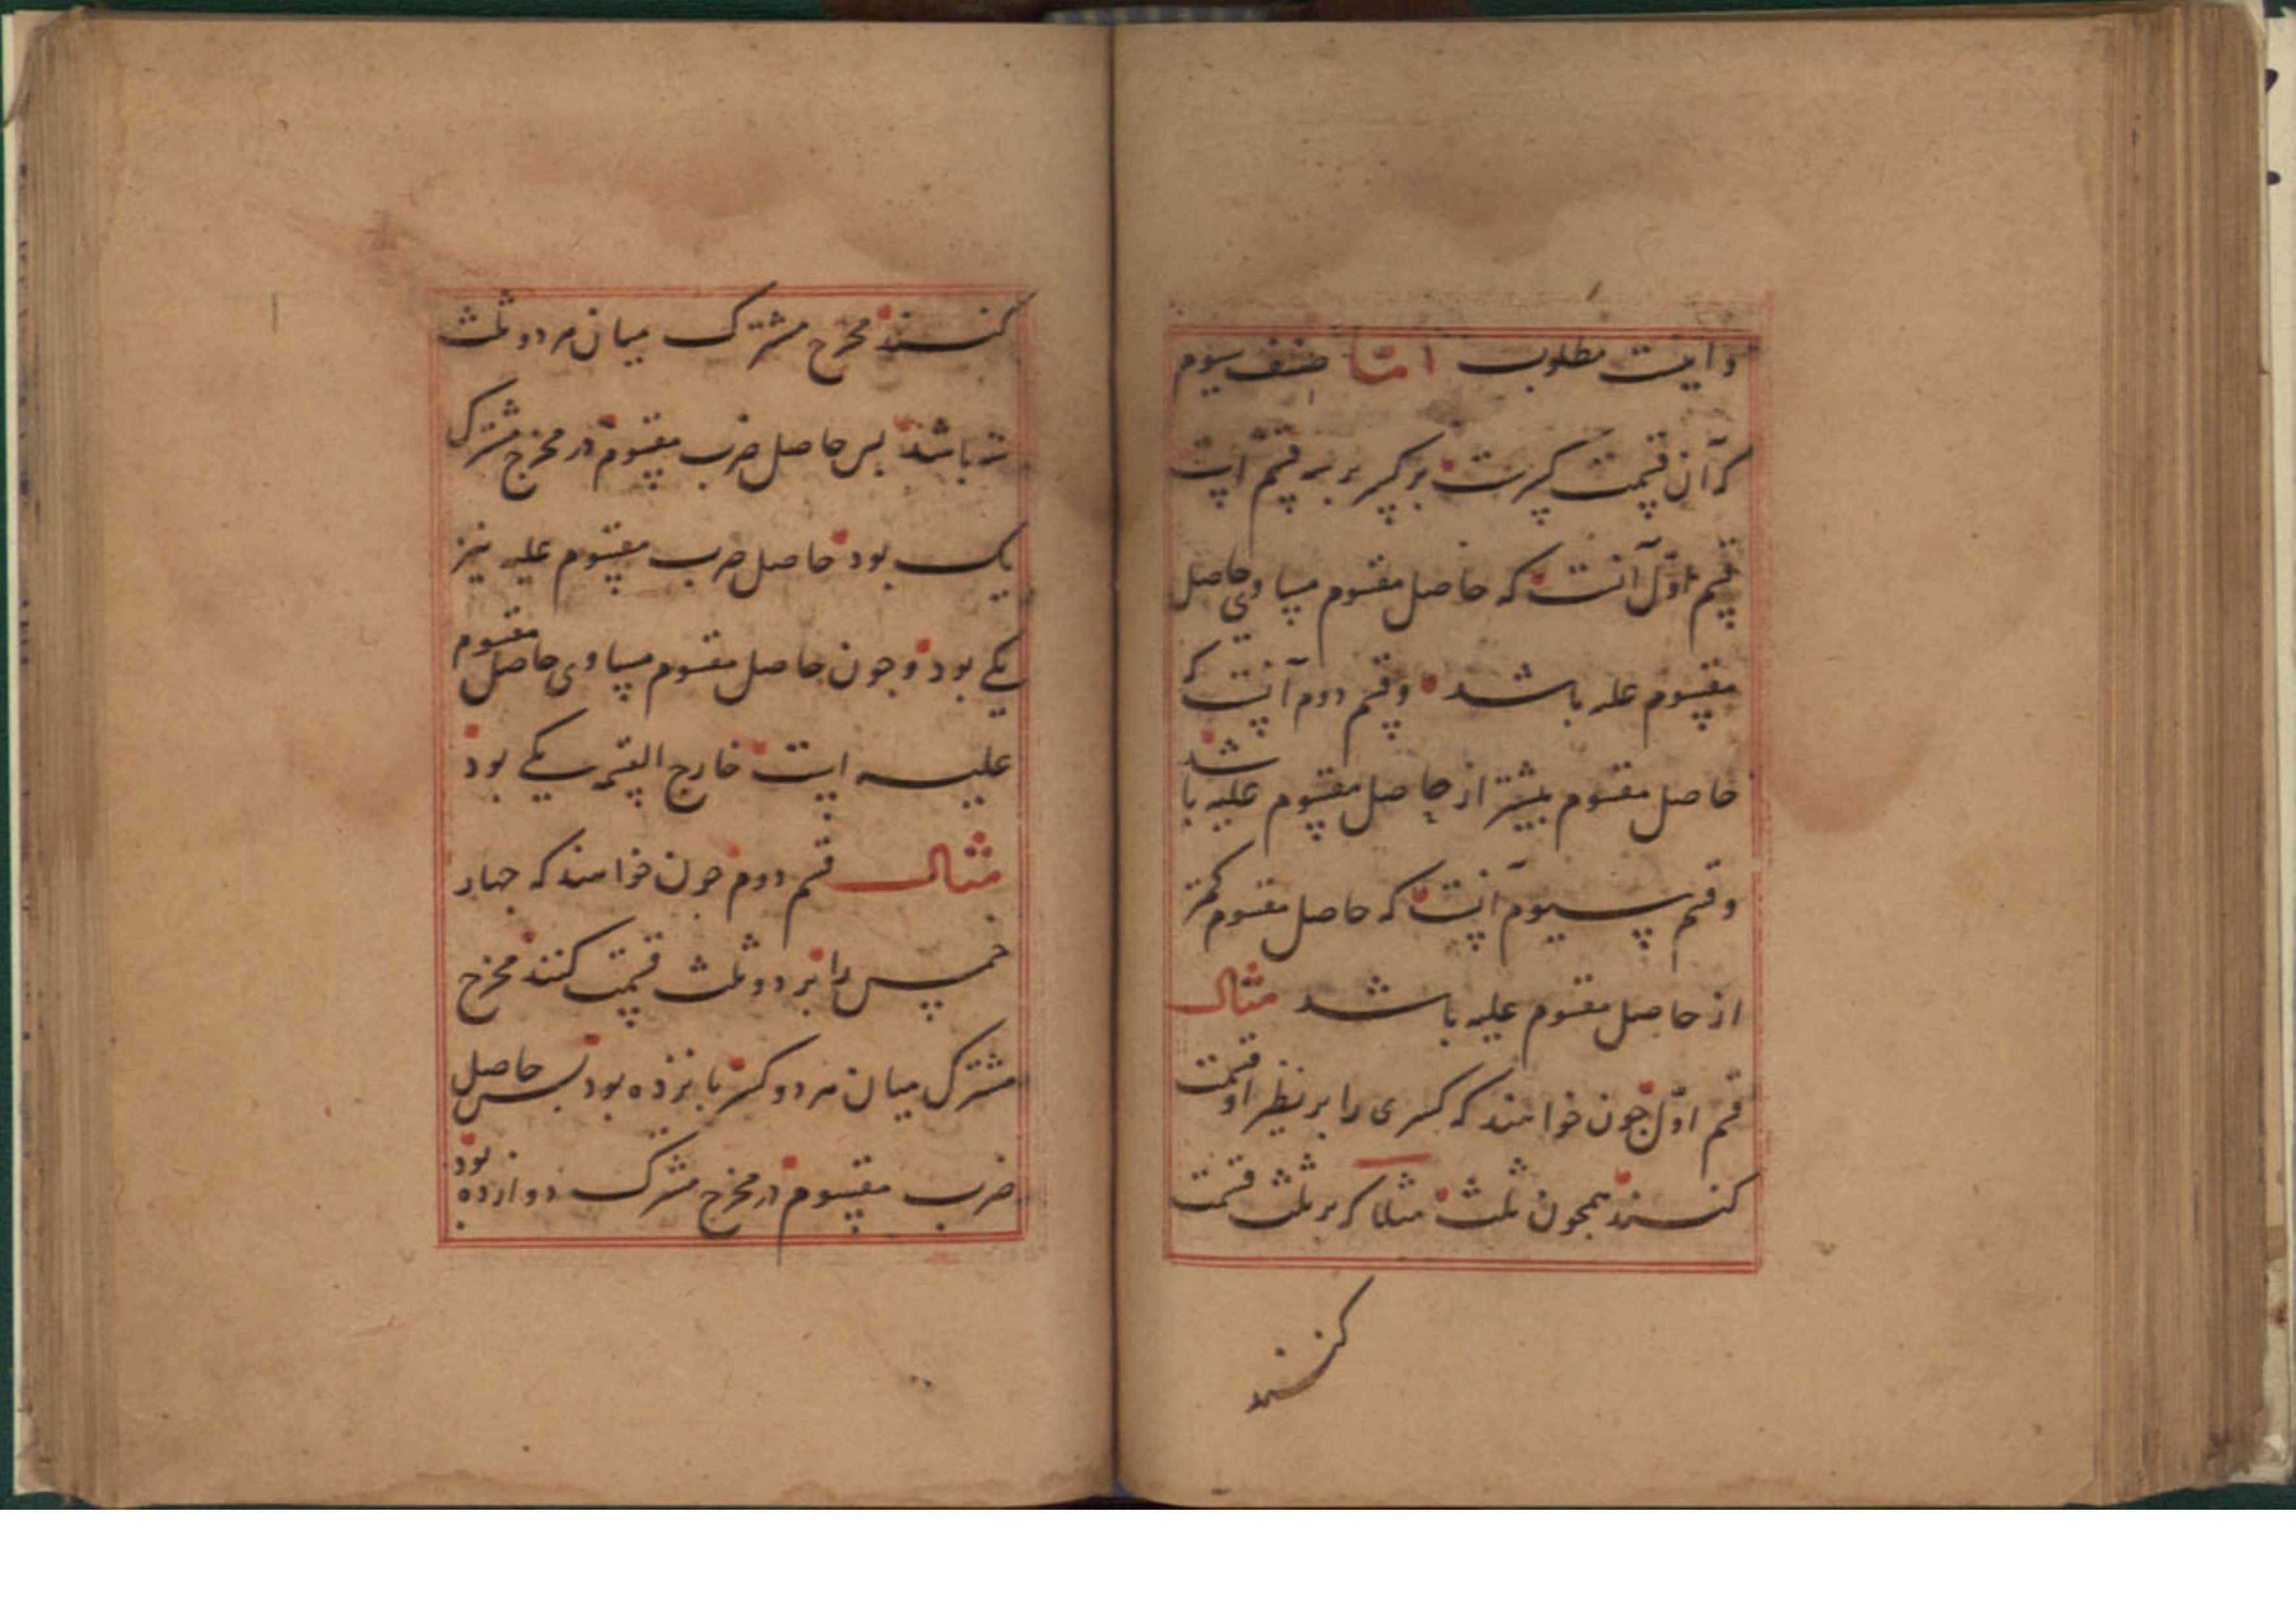 و اینست مطلوب اما صنف سیوم
که آن قسمت کسرست بر کسر بر سه قسم است
قسم اول آنست که حاصل مقسوم مساوی حاصل
مقسوم علیه باشد و قسم دوم آنست که
حاصل مقسوم بیشتر از حاصل مقسوم علیه باشد
و قسم سیوم آنست که حاصل مقسوم کمتر
از حاصل مقسوم علیه باشد مثال
قسم اول چون خواهند که کسری را بر نظیر او قسمت
کنند همچون ثلث مثلا که بر ثلث قسمت
کنند
کنند مخرج مشترک میان هر دو ثلث
سه باشد پس حاصل ضرب مقسوم در مخرج مشترک
یک بود حاصل ضرب مقسوم علیه نیز
یکی بود و چون حاصل مقسوم مساوی حاصل مقسوم
علیه است خارج القسمه یکی بود
مثال قسم دوم چون خواهند که چهار
خمس را بر دو ثلث قسمت کنند مخرج
مشترک میان هر دو کسر پانزده بود پس حاصل
ضرب مقسوم در مخرج مشترک دوازده بود